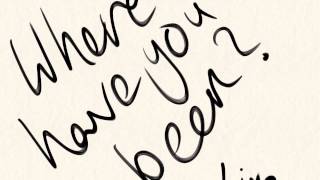 Where
have you
been?